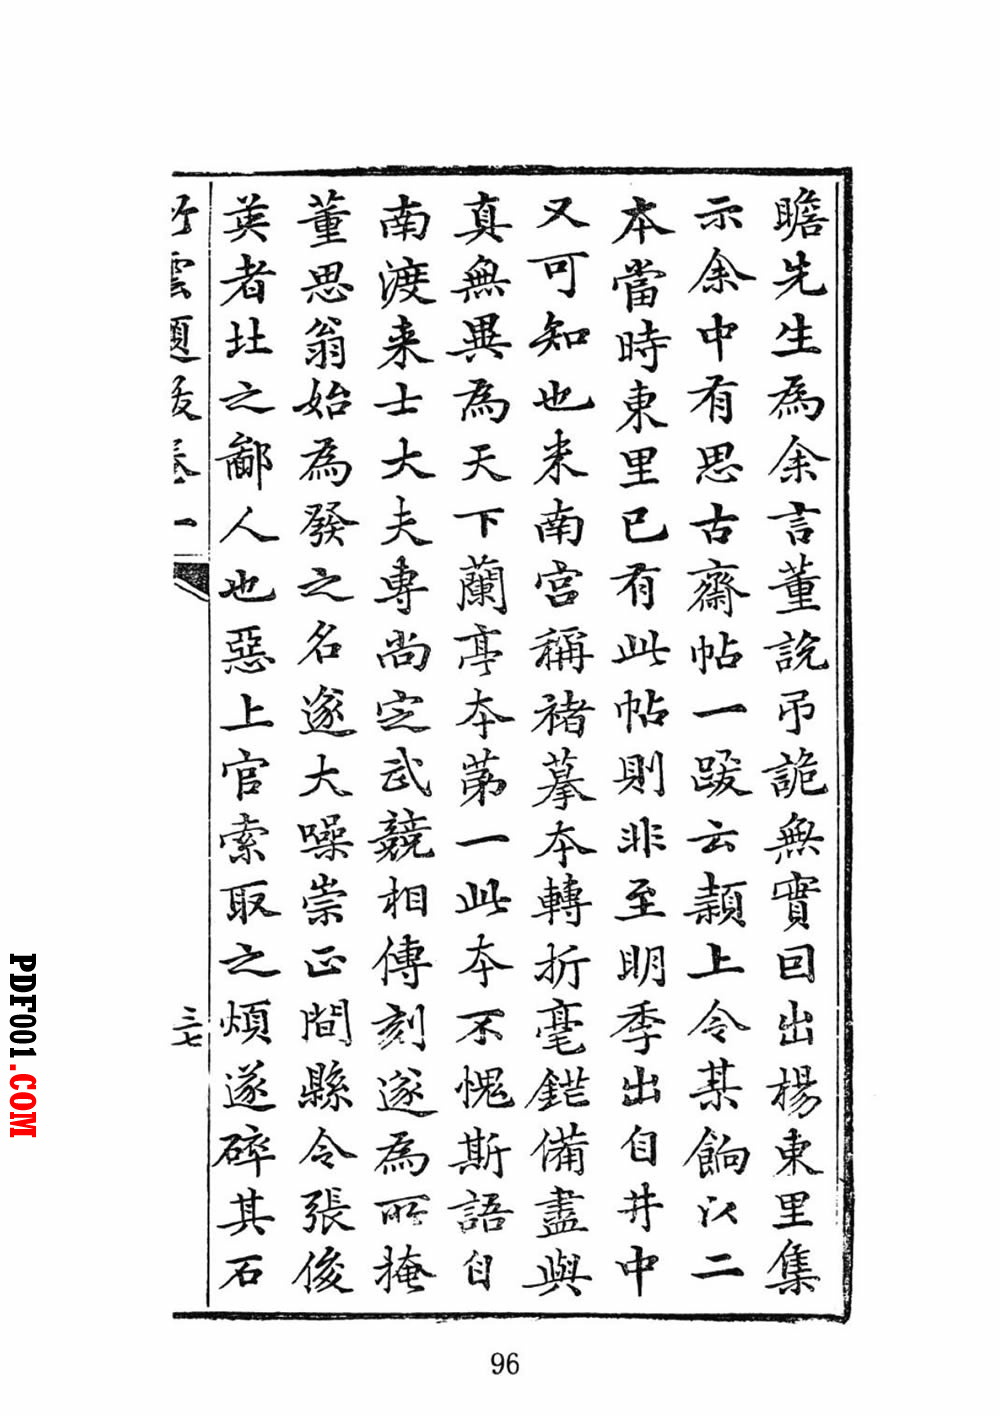 瞻先生為余言董説弔詭無實回出楊東里集
示余中有思古齋帖一跋云頴上令某餉以二
本當時東里已有此帖則非至明季出自井中
又可知也米南宮稱褚摹本轉折毫鋩備盡與
真無異為天下蘭亭本第一此本不愧斯語自
南渡来士大夫專尚定武競相傳刻遂為所掩
董思翁始為發之名遂大噪崇正間縣令張俊
英者壯之鄙人也惡上官索取之煩遂碎其石
竹雲題跋卷一
三七
96
PDF001.COM